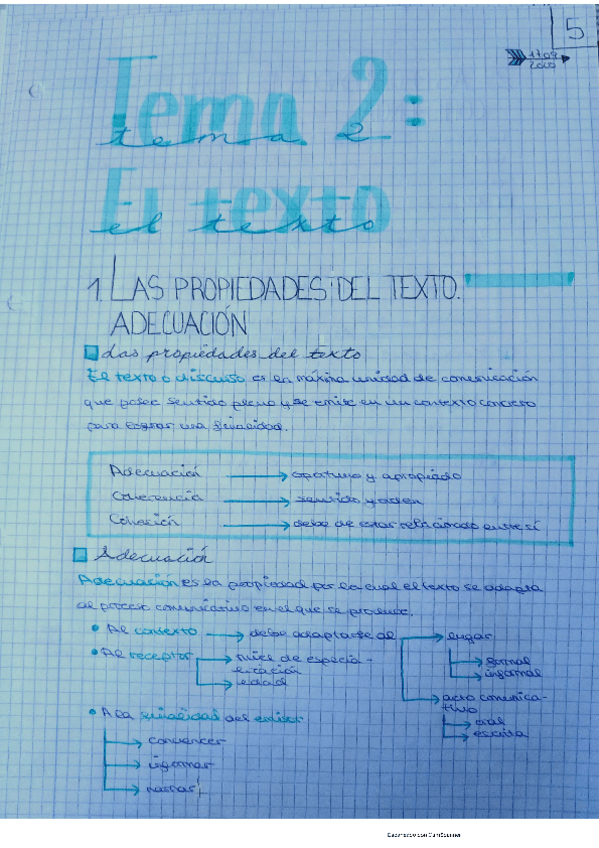 5
17/09
2020
Tema 2:
tema 2
El texto
el texto
1. LAS PROPIEDADES DEL TEXTO.
ADECUACIÓN
Las propiedades del texto
El texto o discurso es la máxima unidad de comunicación
que posee sentido pleno y se emite en un contexto concreto
para lograr una finalidad.
Adecuación → oportuno y apropiado
Coherencia → sentido y orden
Cohesión → debe de estar relacionado entre sí
Adecuación
Adecuación es la propiedad por la cual el texto se adapta
al proceso comunicativo en el que se produce.
• Al contexto → debe adaptarse al → lugar
→ formal
→ informal
→ acto comunica-
tivo
→ oral
→ escrita
• Al receptor → nivel de especia-
lización
→ edad
• A la finalidad del emisor
→ convencer
→ informar
→ narrar
Escaneado con CamScanner